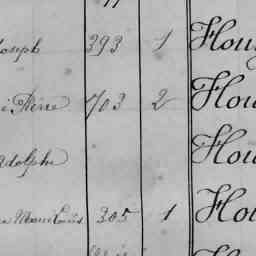 Joseph 393 1 Hou
Pierre 703 2 Hou
Adolphe Hou
Marie Louis 305 1 Hou